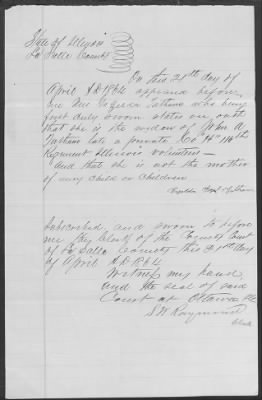 State of Illinois
La Salle County
On this 21st day of
April A D 1864 appeared before
me Mrs Tatham who being
first duly sworn states on oath
that she is the widow of John A
Tatham late a private Co "H" 
Regiment Illinois volunteers —
And that she is not the mother
of any child or children
Subscribed and sworn to before
me the Clerk of the County Court
of La Salle County this 21st day
of April A D 1864
Witness my hand
and the seal of said
Court at Ottawa Ills
S W Raymond
Clerk